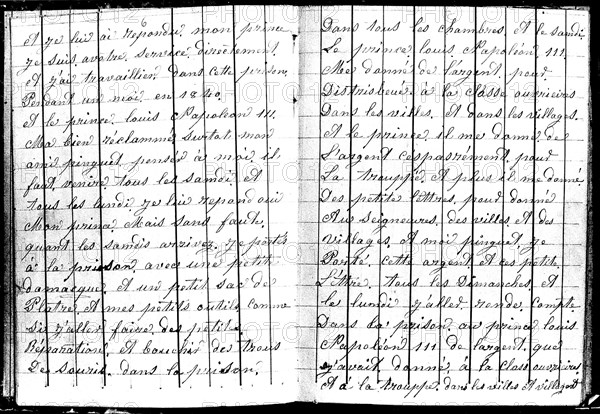 6
Et je lui ai repondu mon prince
je suis avotre service directement.
Et j'ai travaillier dans cette prison.
Pendant un moi en 1840.
Et le prince louis Napoleon 111.
Ma bien réclammé Sivitat mon
ami pinguet penser à moi il
faut venire tous les samdi Et
tous les lundi je lui repond oui
Mon prince Mais sans faute.
quant les samdis arrivez je partis
à la prison avec une petit
damacque Et un petit sac de
Platre. Et mes petits outils comme
Si j'aller faire des petite
Réparation. Et boucher des trous
De souris dans la prison.
Dans tous les chambres Et le samdi
Le prince louis Napoléon 111.
Me donné de l'argent pour
Distribeuer à la Classe ouvriers
Dans les villes Et dans les villages.
Et le prince il me donne de
L'argent cesparrément pour
La trouppe Et plus il me donné
Des petite lettres pour donné
Aus Seigneures des villes Et des
Villages. Et moi pinguet je
Porté cette argent Et ces petite
L'éttre tous les Dimanches Et
le lundi j'aller rende compte
Dans la prison au prince louis
Napoléon 111 de l'argent que
j'avait donné à la Class ouvriers
Et à la trouppe dans les villes et villages